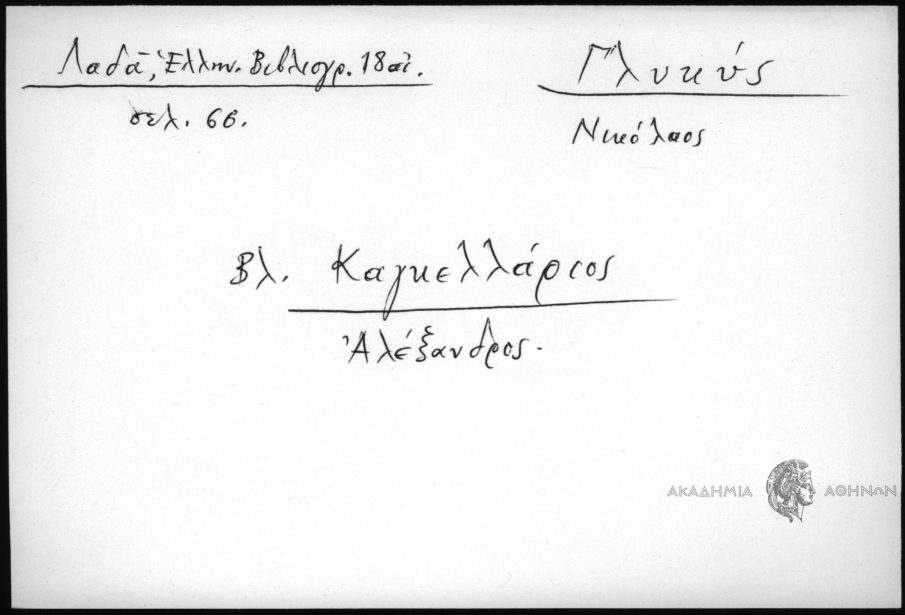 Λαδᾶ, Ἑλλην. Βιβλιογρ. 18 αἰ.
σελ. 66.
Γλυκύς
Νικόλαος
Βλ. Καγκελλάριος
Ἀλέξανδρος.
ΑΚΑΔΗΜΙΑ ΑΘΗΝΩΝ